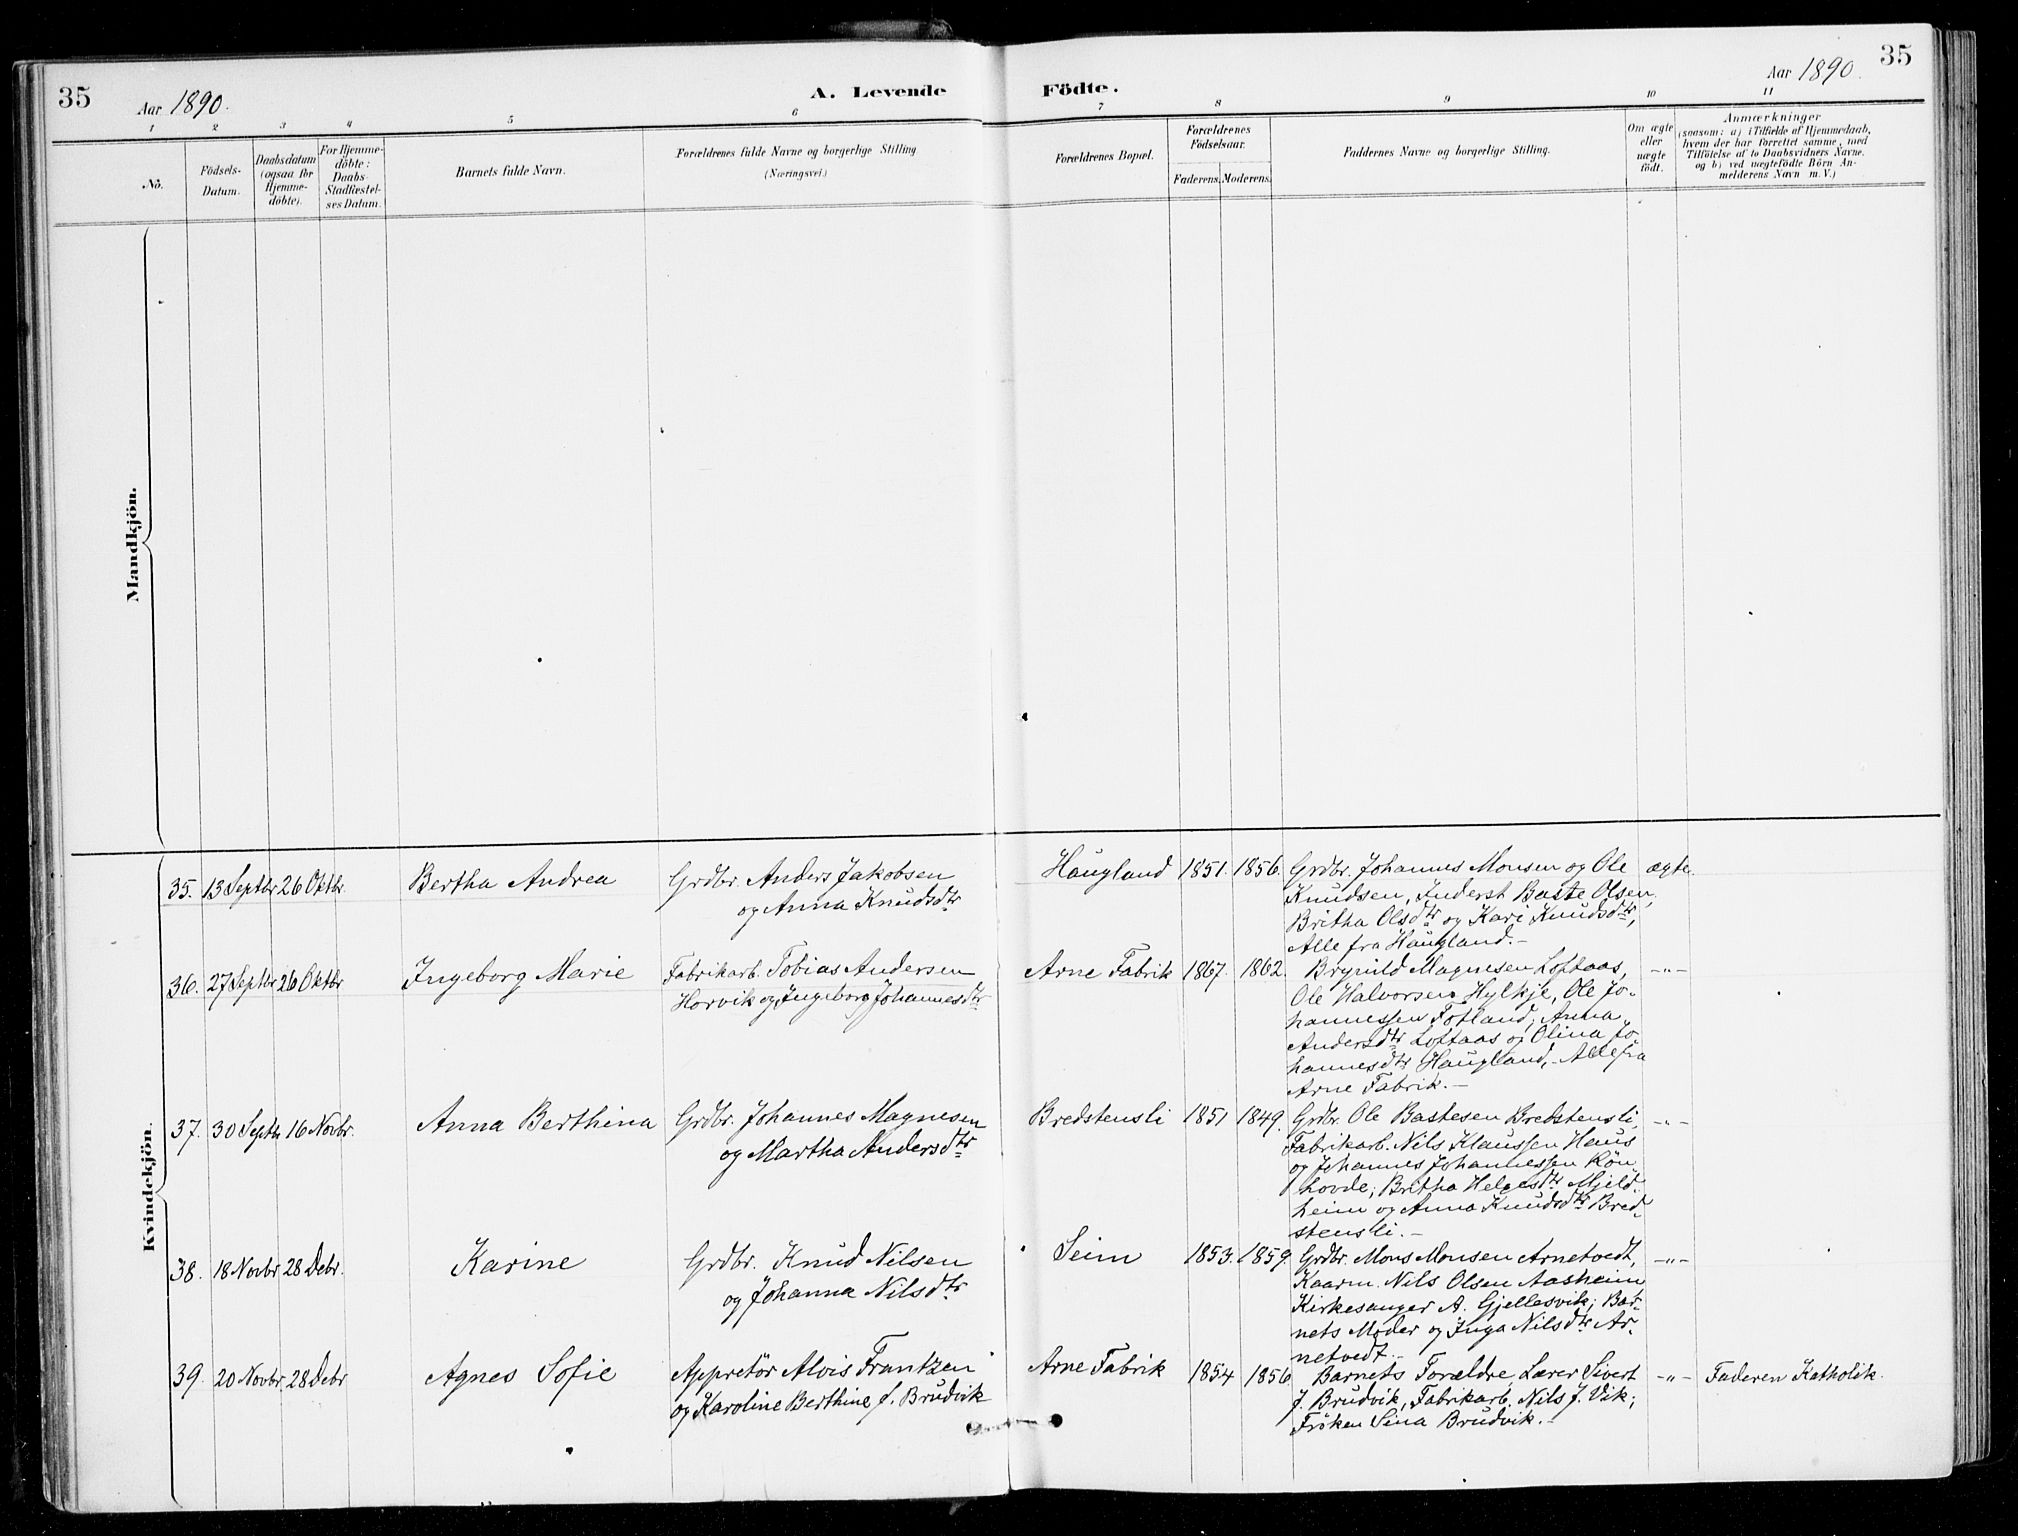 35
Aar 1890.
A. Levende Födte.
Aar 1890.
35
1 2 3 4 5 6 7 8 9 10 11
No.
Födsels-
Datum.
Daabsdatum
(ogsaa for
Hjemme-
döbte).
For Hjemme-
döbte:
Daabs-
Stadfæstel-
ses Datum.
Barnets fulde Navn.
Forældrenes fulde Navne og borgerlige Stilling.
(Næringsvei.)
Forældrenes Bopæl.
Forældrenes
Födselsaar.
Faderens. Moderens.
Faddernes Navne og borgerlige Stilling.
Om ægte
eller
uægte
födt.
Anmærkninger
(saasom: a) i Tilfælde af Hjemmedaab,
hvem der har forrettet samme, med
Tilföielse af to Daabsvidners Navne.
og b) ved uægtefödte Börn An-
melderens Navn m. V.)
Mandkjön.
Kvindekjön.
35. 13 Septbr 26 Oktbr. Bertha Andrea
Grdbr. Anders Jakobsen
og Anna Knudsdtr
Haugland 1851. 1856.
Grdbr. Johannes Monsen og Ole
Knudsen, Inderst Baste Olsen,
Britha Olsdtr og Kari Knudsdtr,
Alle fra Haugland.-
ægte.
36. 27 Septbr 26 Oktbr Ingeborg Marie
Fabrikarb. Tobias Andersen
Horvik og Ingeborg Johannesdtr
Arne Fabrik 1867. 1862.
Brynild Magnesen Loftaas,
Ole Halvorsen Hylkje, Ole Jo-
hannessen Fotland; Anna
Andersdtr Loftaas og Olina Jo-
hannesdtr Haugland,- Alle fra
Arne Fabrik.-
-"-
37. 30 Septbr 16 Novbr. Anna Berthina
Grdbr. Johannes Magnesen
og Martha Andersdtr
Bredstensli 1851 1849.
Grdbr. Ole Bastesen Bredstensli,
Fabrikarb. Nils Klaussen Haus
og Johannes Johannessen Rön
hovde; Britha Helgesdtr Mjeld-
heim og Anna Knudsdtr Bred-
stensli.-
-"-
38. 18 Novbr 28 Debr. Karine
Grdbr. Knud Nilsen
og Johanna Nilsdtr
Seim 1853. 1859.
Grdbr. Mons Monsen Arnetvedt,
Kaarm. Nils Olsen Aasheim
Kirkesanger A. Gjellesvik; Bar-
nets Moder og Inga Nilsdtr Ar-
netvedt.-
-"-
39. 20 Novbr 28 Debr Agnes Sofie
Appretör Alois Frantzen
og Karoline Berthine f. Brudvik
Arne Fabrik 1854 1856
Barnets Forældre, Lærer Sivert
J. Brudvik, Fabrikarb. Nils J. Vik;
Fröken Sina Brudvik.-
-"-
Faderen Katholik.